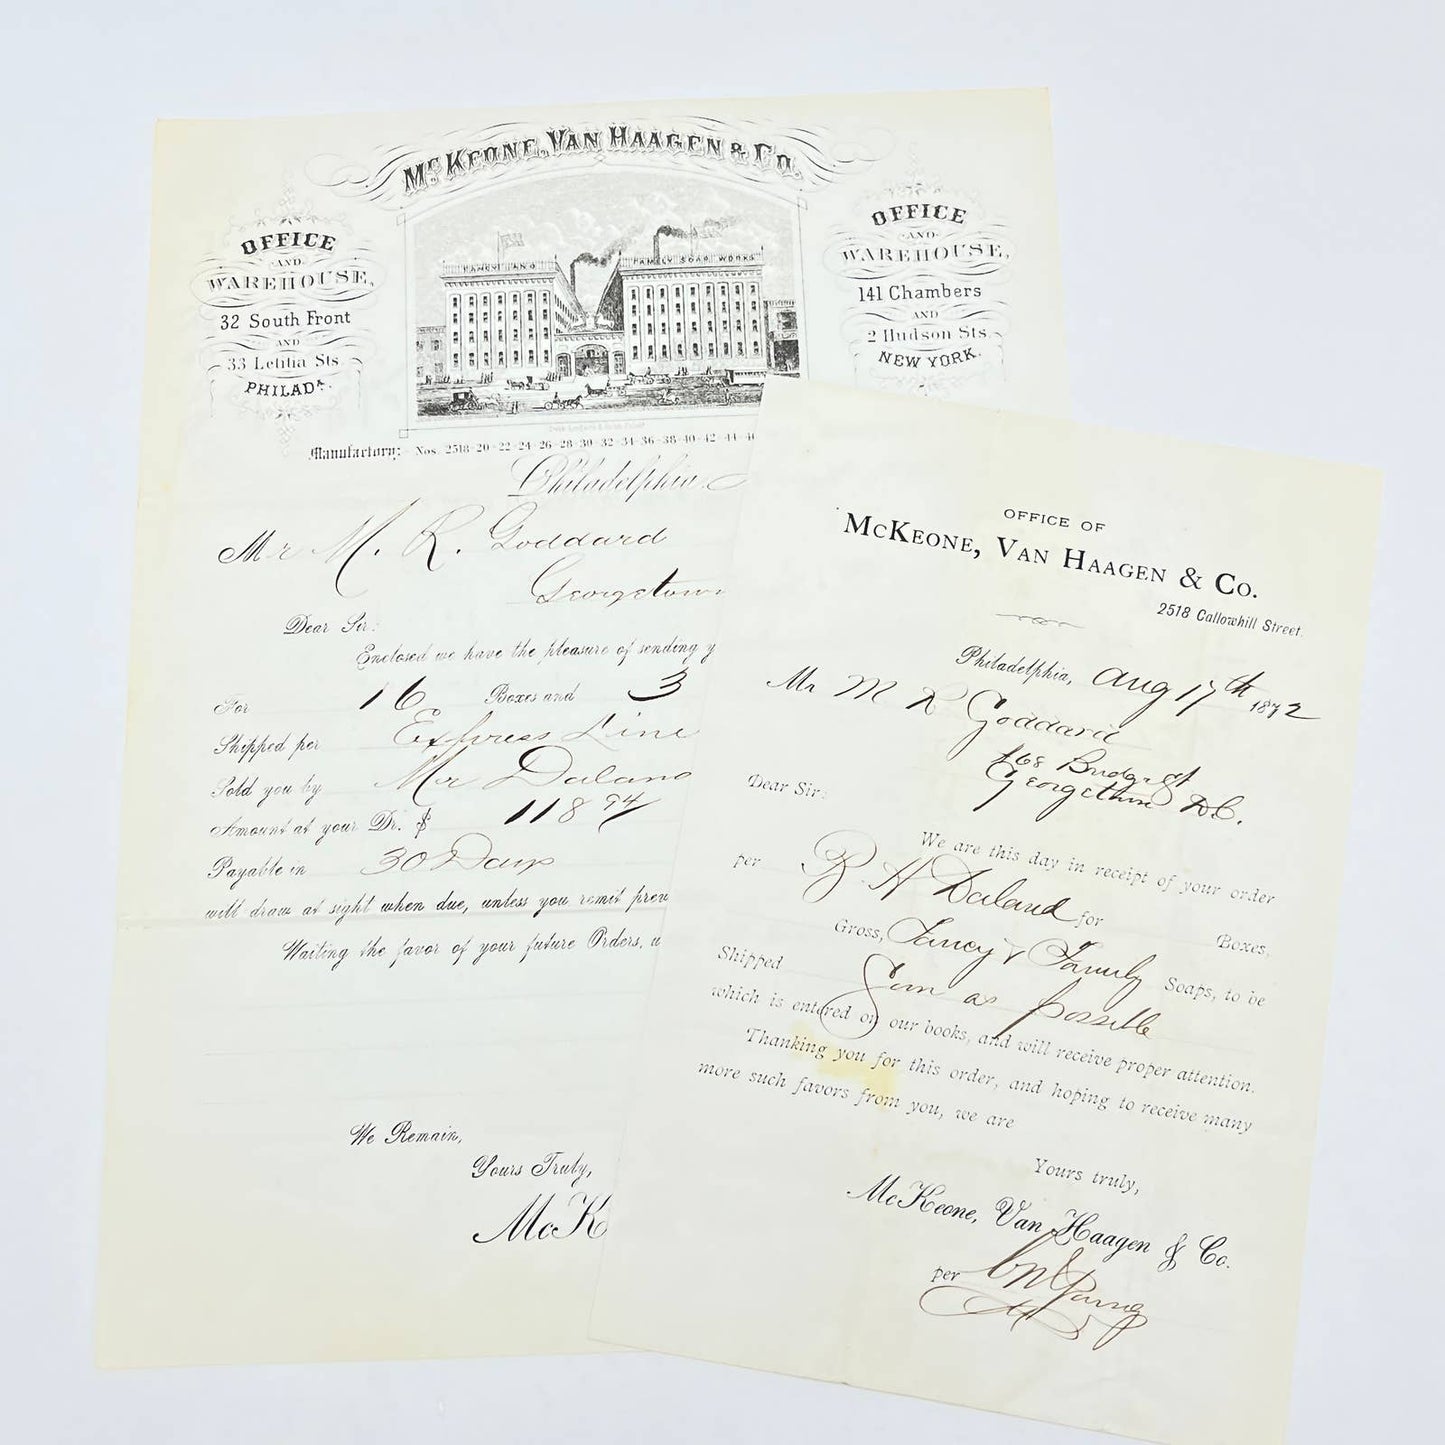 McKEONE, VAN HAAGEN & Co.
OFFICE
AND
WAREHOUSE,
32 South Front
AND
33 Letitia Sts
PHILADA.
OFFICE
AND
WAREHOUSE,
141 Chambers
AND
2 Hudson Sts
NEW YORK.
FANCY AND
FAMILY SOAP WORKS
Manufactory: Nos. 2518-20-22-24-26-28-30-32-34-36-38-40-42-44-46
Philadelphia,
Mr M. R. Goddard
Georgetown
Dear Sir:
Enclosed we have the pleasure of sending y
For 16 Boxes and 3
Shipped per Express Line
Sold you by Mr Daland
Amount at your Dr. $ 118 94/
Payable in 30 Days
will draw at sight when due, unless you remit prev
Waiting the favor of your future Orders, w
We Remain,
Yours Truly,
McK
OFFICE OF
McKEONE, VAN HAAGEN & Co.
2518 Callowhill Street.
Philadelphia, Aug 17th 1872
Mr M R Goddard
168 Bridge st
Georgetown DC.
Dear Sir:
We are this day in receipt of your order
per B. H Daland for Boxes,
Gross, Fancy & Family Soaps, to be
Shipped Soon as possible
which is entered on our books, and will receive proper attention.
Thanking you for this order, and hoping to receive many
more such favors from you, we are
Yours truly,
McKeone, Van Haagen & Co.
per